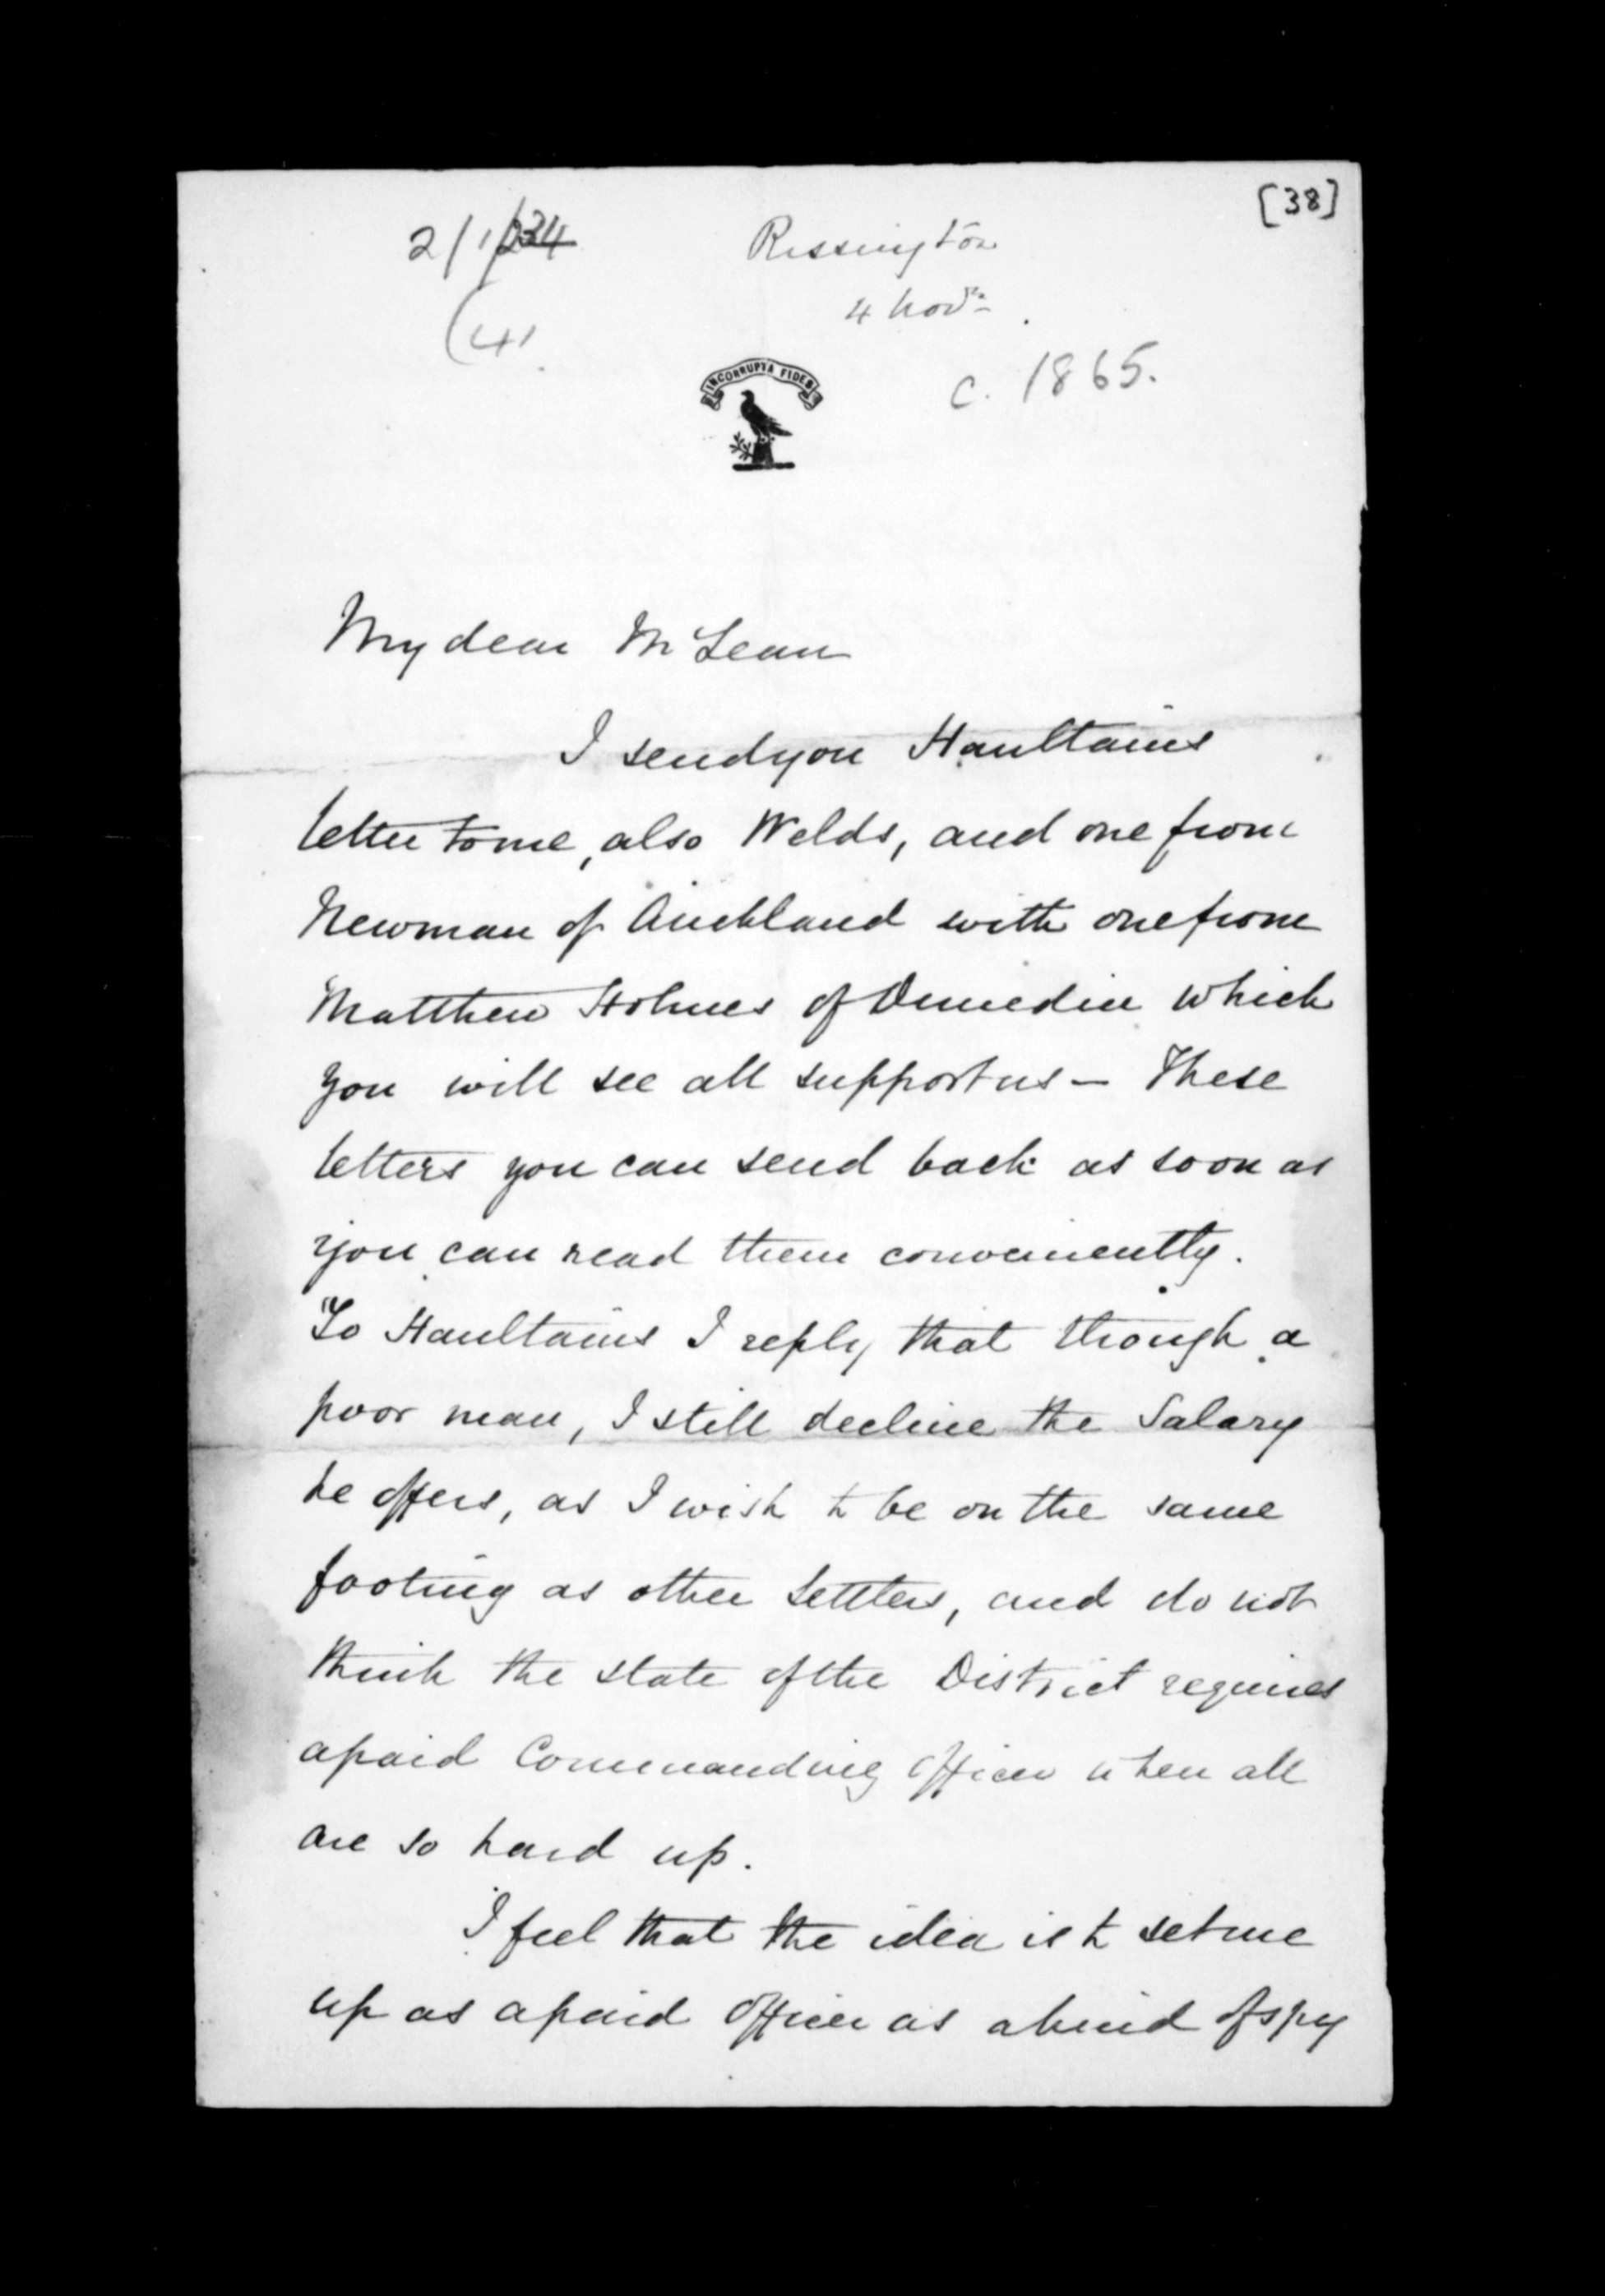 [38]
2/1/234
(41
Rissington
4 Novr
c. 1865.
INCORRUPTA FIDES
My dear McLean
I send you Haultains
letter to me, also Welds, and one from
Newman of Auckland with one from
Matthew Holmes of Dunedin which
you will see all support us — These
letters you can send back as soon as
you can read them conveniently.
To Haultains I reply that though a
poor man, I still decline the Salary
he offers, as I wish to be on the same
footing as other settlers, and do not
think the state of the District requires
a paid Commanding Officer when all
are so hard up.
I feel that the idea is to set me
up as a paid Officer as a kind of spy